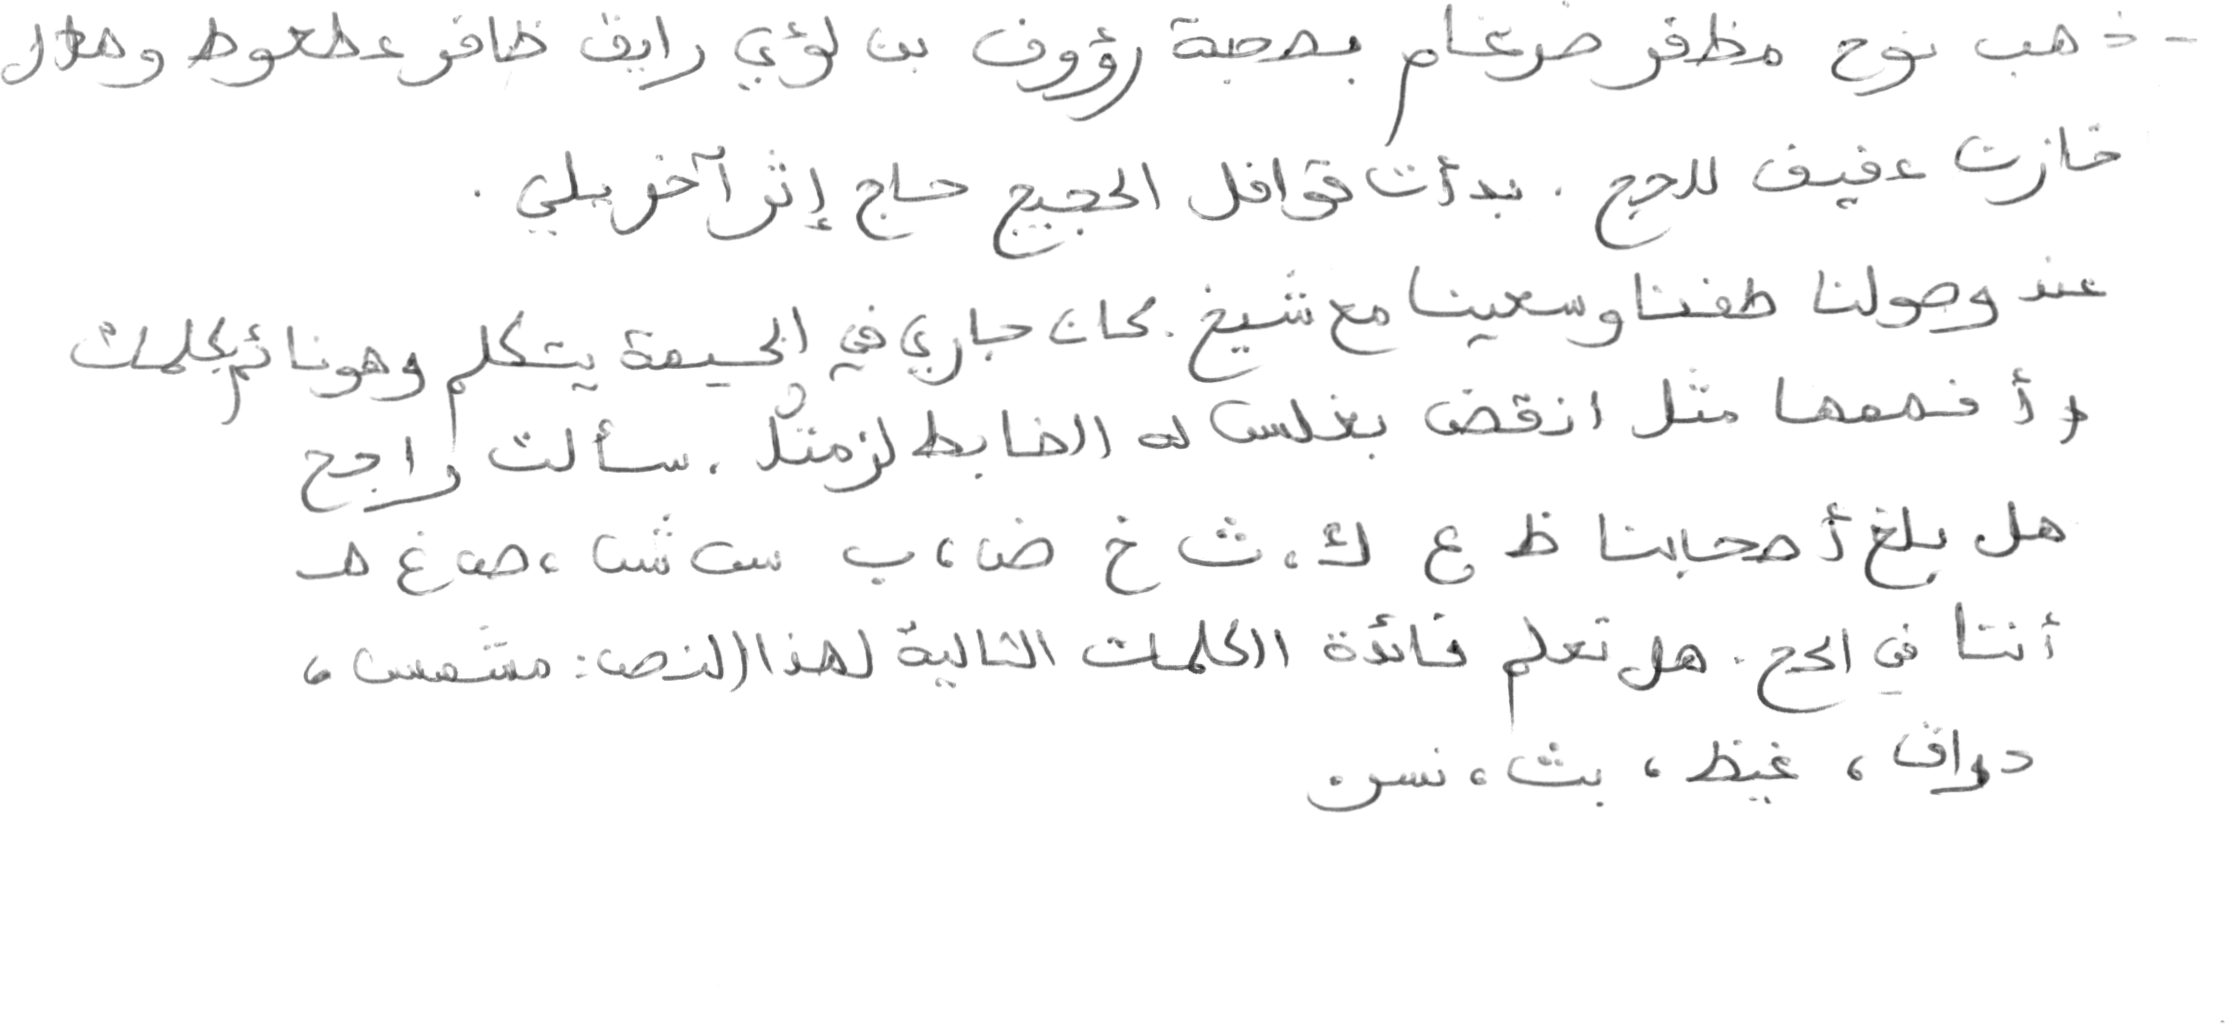 - ذهب نوح مظفر ضرغام بصحبة رؤوف بن لؤي رايق ظافر عطعوط وهلال
فازت عفيف للحج . بدأت قوافل الحجيج حاج إثر آخر يلي .
عند وصولنا طفنا وسعينا مع شيخ . كان جاري في الخيمة يتكلم وهو نائم بكلمات
لا أفهمها مثل انقض بغلس له الضابط لزمثلٌ . سألت راجح
هل بلغ أصحابنا ظ ع ك ، ث خ ض ، ب س ش ، ص غ هـ
أننا في الحج . هل تعلم فائدة الكلمات التالية لهذا النص : مشمس ،
دواق ، غيظ ، بث ، نسر .